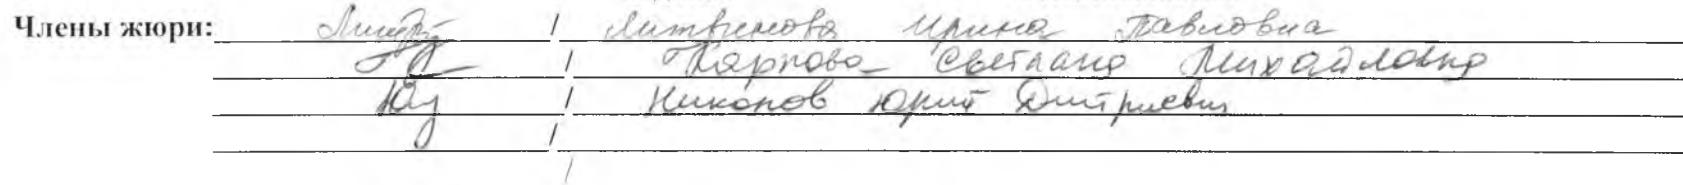 Члены жюри: / Литвинова Ирина Павловна
/ Карпова Светлана Михайловна
/ Никонов Юрий Дмитриевич
/
/